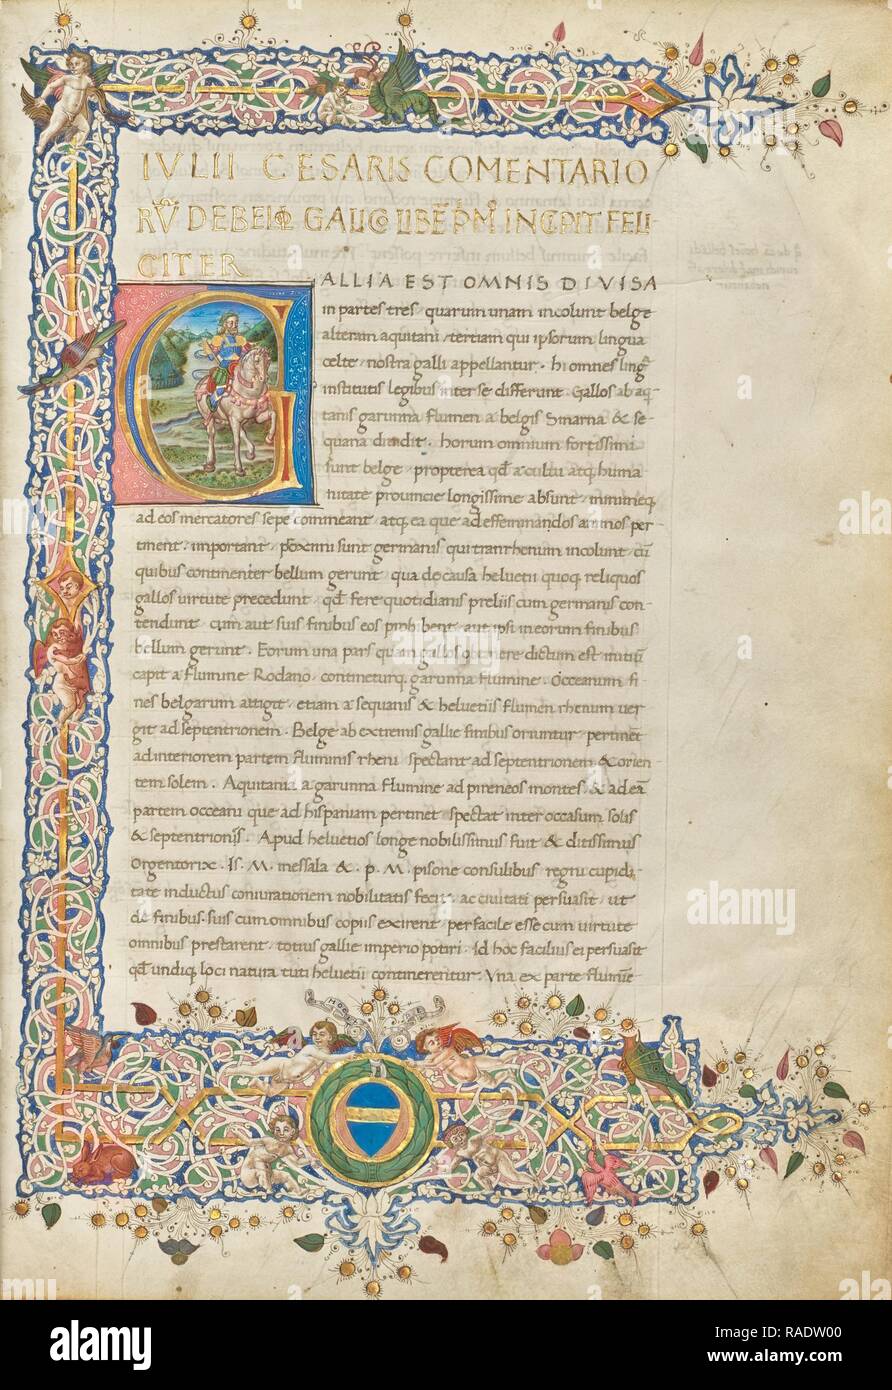 IVLII CESARIS COMENTARIO
RṼ DE BELLO GALICO LIBẼ PM̃ INCIPIT FELI
CITER
GALLIA EST OMNIS DIVISA
in partes tres, quarum unam incolunt belge
alteram aquitani, tertiam qui ipsorum lingua
celte, nostra galli appellantur. hi omnes lingᷓ
institutis legibus inter se differunt. Gallos ab aq̃
tanis garunna flumen a belgis Smarna & se-
quana diuidit. horum omnium fortissimi
sunt belge, propterea qđ a cultu atq; huma
nitate prouincie longissime absunt, minimeq;
ad eos mercatores sepe commeant, atq; ea que ad effeminandos animos per-
tinent, important, proximi sunt germanis qui tranrhenum incolunt, cũ
quibus continenter bellum gerunt, qua de causa heluetii quoq; reliquos
gallos uirtute precedunt, qđ fere quotidianis preliis cum germanis con-
tendunt, cum aut suis finibus eos prohibent, aut ipsi in eorum finibus
bellum gerunt. Eorum una pars quam gallos obtinere dictum est initiũ
capit a flumine Rodano, contineturq; garunna flumine, Occeanum fi-
nes belgarum attigit, etiam a sequanis & heluetiis flumen rhenum uer
git ad septentrionem. Belge ab extremis gallie finibus oriuntur, pertinẽt
ad interiorem partem fluminis rheni, spectant ad septentrionem & orien
tem solem. Aquitania a garunna flumine ad pireneos montes, & ad eã
partem occeani que ad hispaniam pertinet, spectat inter occasum solis
& septentrionis. Apud heluetios longe nobilissimus fuit & ditissimus
Orgentorix. Is. M. messala &. p. M. pisone consulibus regni cupidi
tate inductus coniurationem nobilitatis fecit, ac ciuitati persuasit, ut
de finibus suis cum omnibus copiis exirent, perfacile esse cum uirtute
omnibus prestarent, totius gallie imperio potiri. Id hoc facilius ei persuasit
qđ undiq; loci natura tuti heluetii continerentur, Vna ex parte flumĩe
alamy
alamy stock photo
RADW00
www.alamy.com